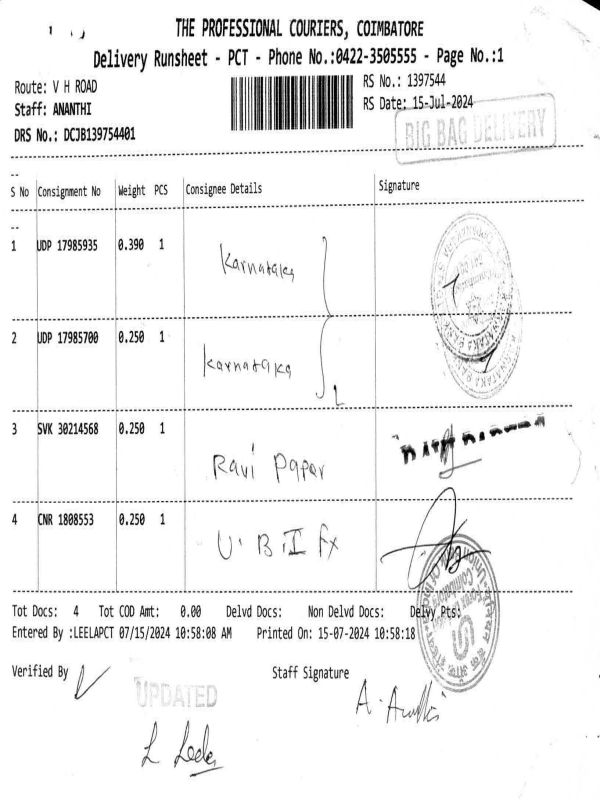 THE PROFESSIONAL COURIERS, COIMBATORE
Delivery Runsheet - PCT - Phone No.:0422-3505555 - Page No.:1
Route: V H ROAD
RS No.: 1397544
Staff: ANANTHI
RS Date: 15-Jul-2024
DRS No.: DCJB139754401
BIG BAG DELIVERY
S No Consignment No Weight PCS Consignee Details Signature
1 UDP 17985935 0.390 1 Karnataka
2 UDP 17985700 0.250 1 Karnataka
3 SVK 30214568 0.250 1 Ravi Paper
4 CNR 1808553 0.250 1 U.B.I Fx
Tot Docs: 4 Tot COD Amt: 0.00 Delvd Docs: Non Delvd Docs: Delvy Pts:
Entered By :LEELAPCT 07/15/2024 10:58:08 AM Printed On: 15-07-2024 10:58:18
Verified By
Staff Signature
UPDATED
L Leela
A. Ananthi